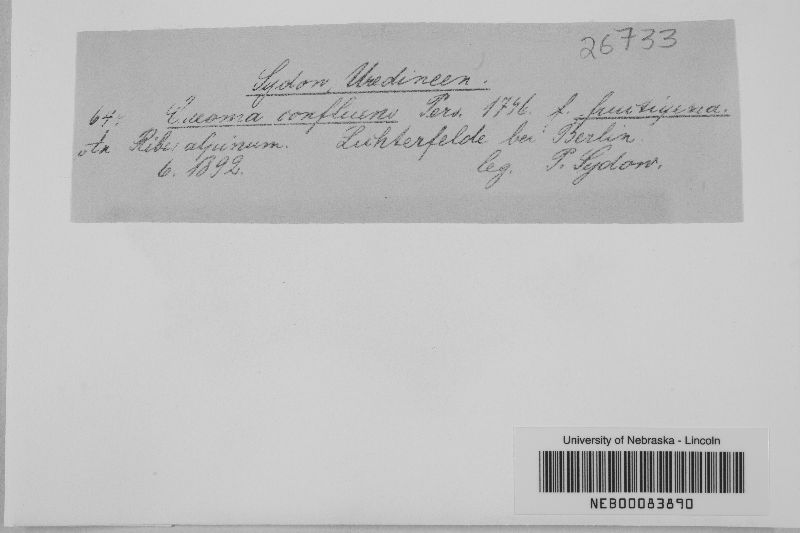 26733
Sydow, Uredineen.
Caeoma confluens Pers. 1796. f. fructigena.
An Ribes alpinum. Lichterfelde bei Berlin
6. 1892. leg. P. Sydow.
University of Nebraska - Lincoln
NEB00083890